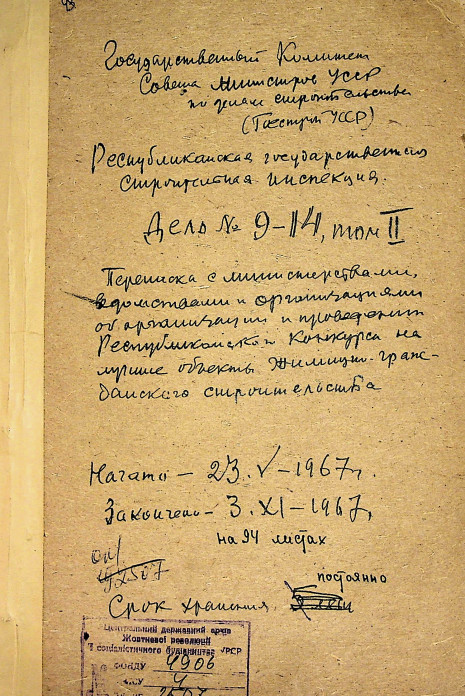 Государственный Комитет
Совета Министров УССР
по делам строительства
(Госстрой УССР)
Республиканская государственная
строительная инспекция.
Дело № 9-14, том II
Переписка с министерствами,
ведомствами и организациями
об организации и проведении
Республиканского Конкурса на
лучшие объекты жилищно-граж-
данского строительства
Начато – 23.V–1967г.
Закончено – 3.XI–1967г,
на 94 листах
оп1
постоянно
Срок хранения
Центральний державний архів
Жовтневої революції
і соціалістичного будівництва УРСР
ФОНДУ 4906